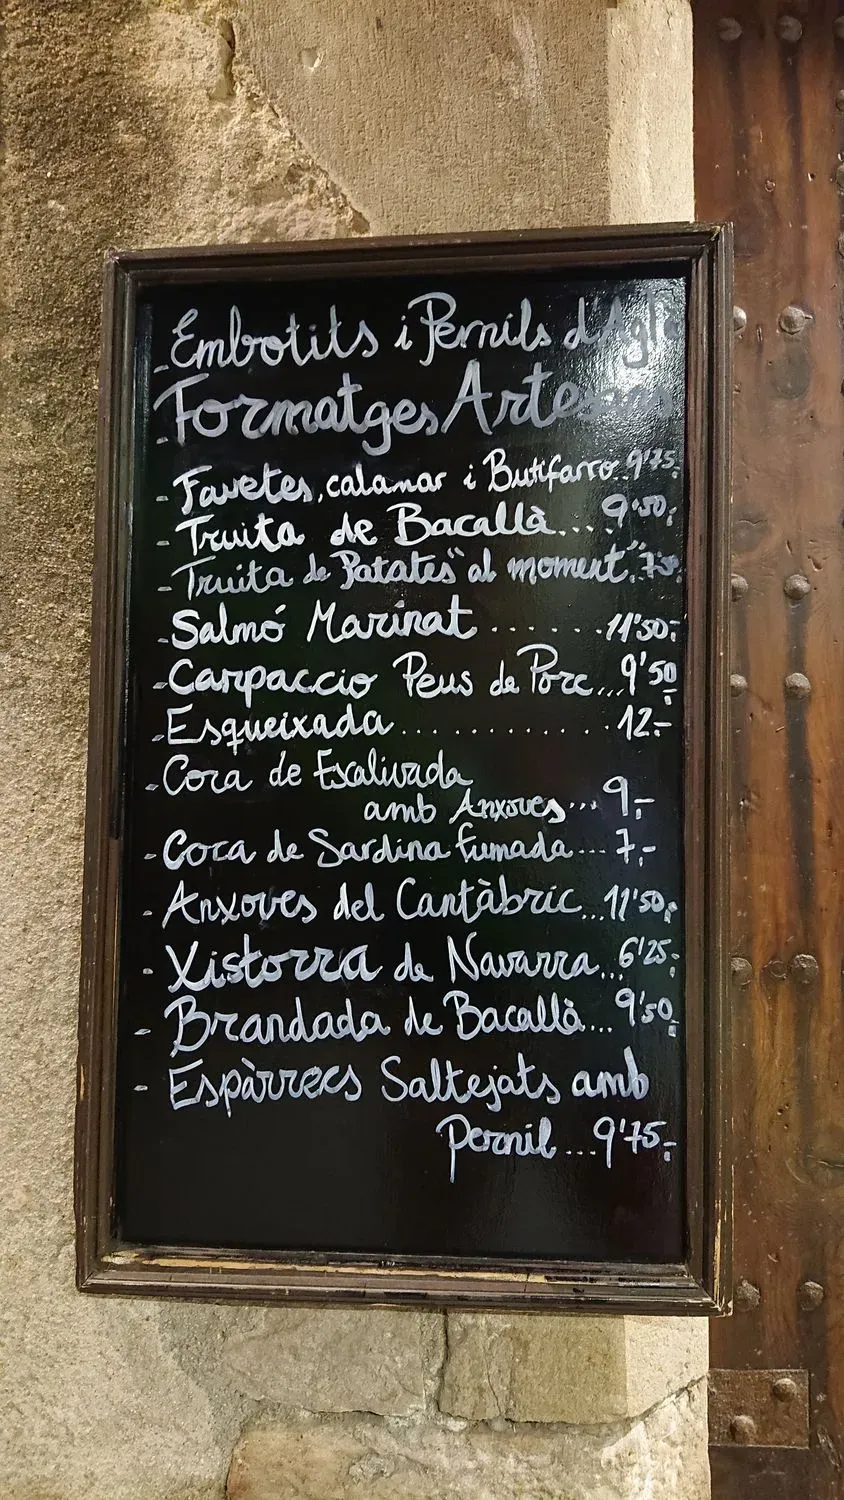 - Embotits i Pernils d'Agl
- Formatges Artesans
- Favetes, calamar i Butifarro..9'75,-
- Truita de Bacallà....9'50,-
- Truita de Patates "al moment".7'50,
- Salmó Marinat ......11'50,-
- Carpaccio Peus de Porc...9'50,-
- Esqueixada............12.-
- Coca de Escalivada
amb Anxoves...9,-
- Coca de Sardina fumada...7,-
- Anxoves del Cantàbric...11'50,-
- Xistorra de Navarra...6'25,-
- Brandada de Bacallà...9'50,-
- Espàrrecs Saltejats amb
Pernil...9'75,-